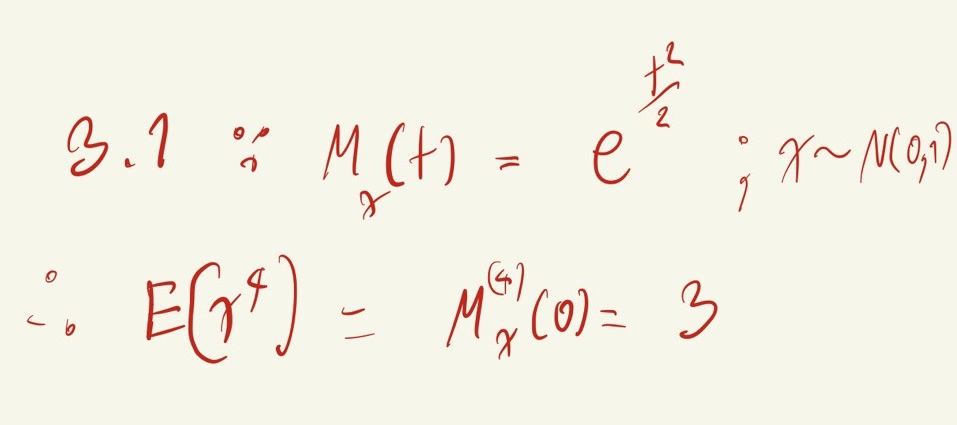 3.1 ∵ M_x(t) = e^{t^2/2} ; x ~ N(0,1)
∴ E(x^4) = M_x^{(4)}(0) = 3